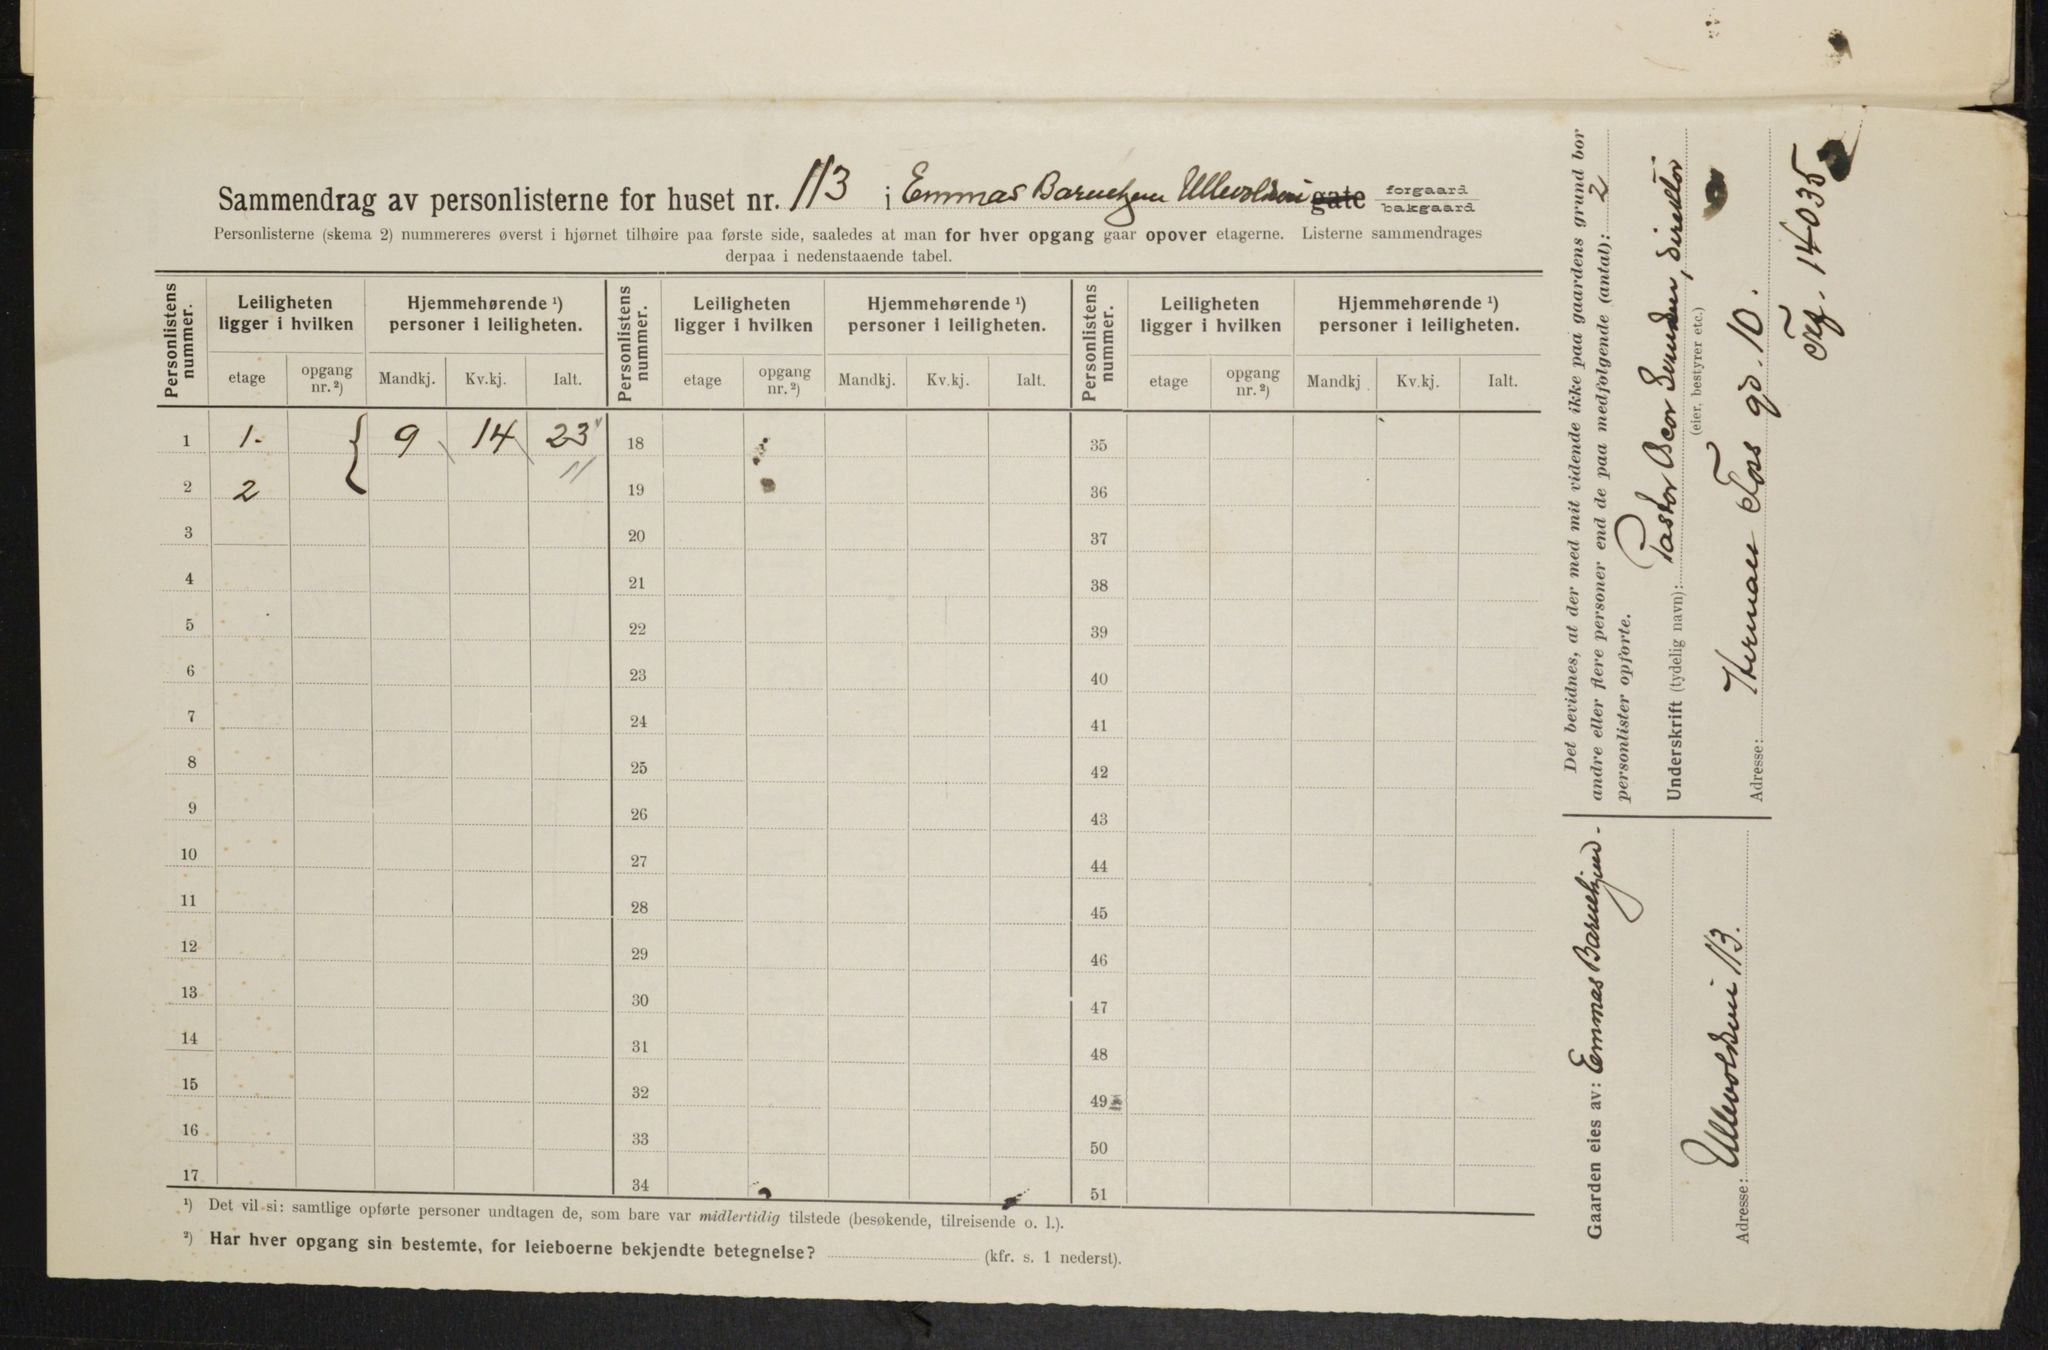 Sammendrag av personlisterne for huset nr. 113 i Emmas Barnehjem Ullevoldsvei gate forgaard bakgaard
Personlisterne (skema 2) nummereres øverst i hjørnet tilhøire paa første side, saaledes at man for hver opgang gaar opover etagerne. Listerne sammendrages
derpaa i nedenstaaende tabel.
Personlistens nummer. Leiligheten ligger i hvilken Hjemmehørende ¹) personer i leiligheten. Personlistens nummer. Leiligheten ligger i hvilken Hjemmehørende ¹) personer i leiligheten. Personlistens nummer. Leiligheten ligger i hvilken Hjemmehørende ¹) personer i leiligheten.
etage opgang nr. ²) Mandkj. Kv.kj. Ialt. etage opgang nr. ²) Mandkj. Kv.kj. Ialt. etage opgang nr. ²) Mandkj Kv.kj. Ialt.
1 1. 9 14 23 18 35
11
2 2 19 36
3 20 37
4 21 38
5 22 39
6 23 40
7 24 41
8 25 42
9 26 43
10 27 44
11 28 45
12 29 46
13 30 47
14 31 48
15 32 49
16 33 50
17 34 51
¹) Det vil si: samtlige opførte personer undtagen de, som bare var midlertidig tilstede (besøkende, tilreisende o. l.).
²) Har hver opgang sin bestemte, for leieboerne bekjendte betegnelse? (kfr. s. 1 nederst).
Det bevidnes, at der med mit vidende ikke paa gaardens grund bor
andre eller flere personer end de paa medfølgende (antal): 2
personlister opførte.
Underskrift (tydelig navn): Pastor direktør
(eier, bestyrer etc.)
Adresse: Herman Foss gd. 10.
Tlf. 14035
Gaarden eies av: Emmas Barnehjem.
Adresse: Ullevoldsvei 113.